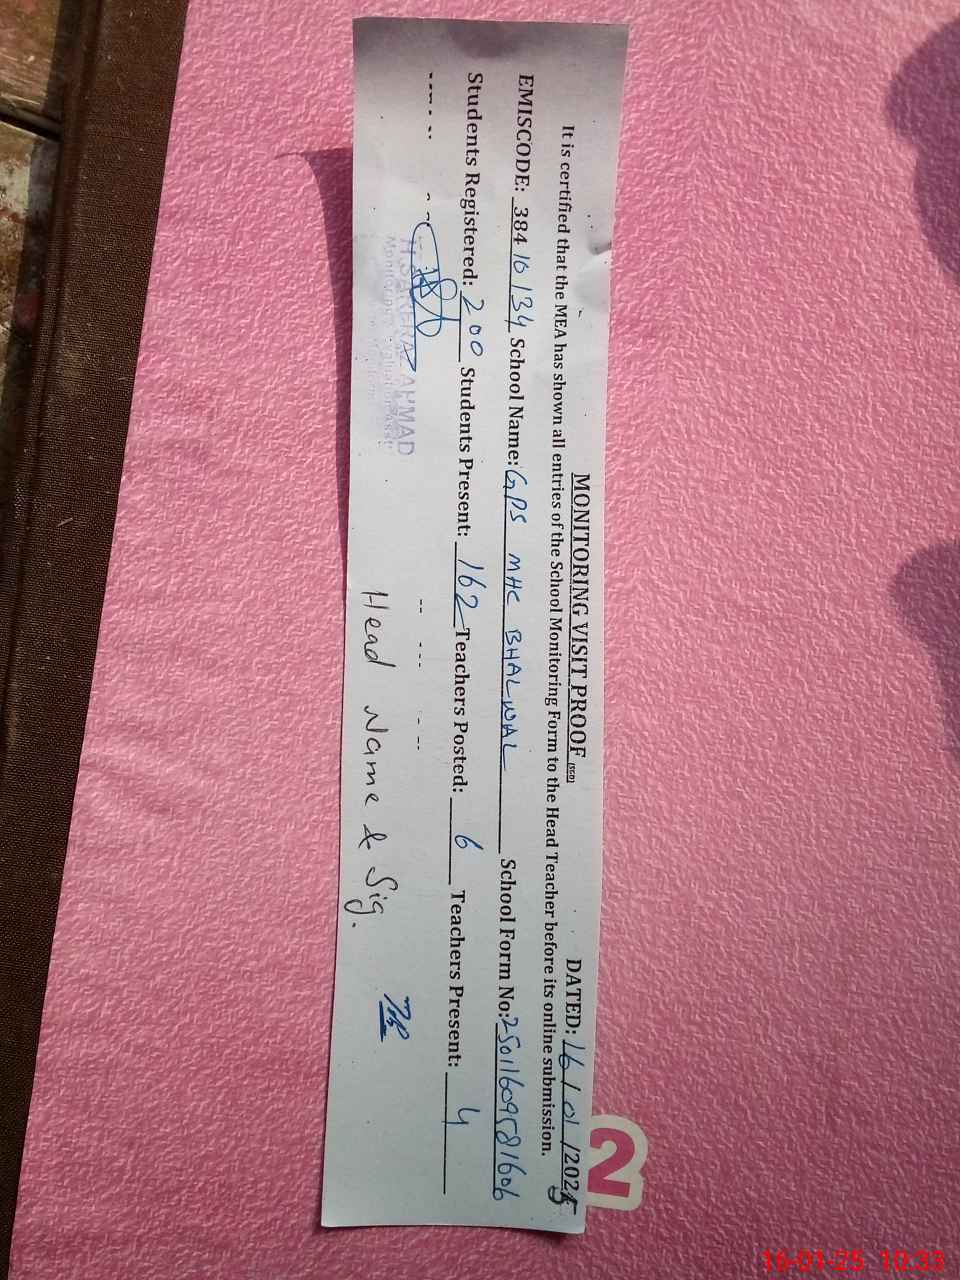 MONITORING VISIT PROOF (SGD) DATED: 16/01/2025
It is certified that the MEA has shown all entries of the School Monitoring Form to the Head Teacher before its online submission.
EMISCODE: 38410134 School Name: GPS MHC BHALWAL School Form No: 25011609581606
Students Registered: 200 Students Present: 162 Teachers Posted: 6 Teachers Present: 4
AHMAD
Head Name & Sig.
2
16-01-25 10:33